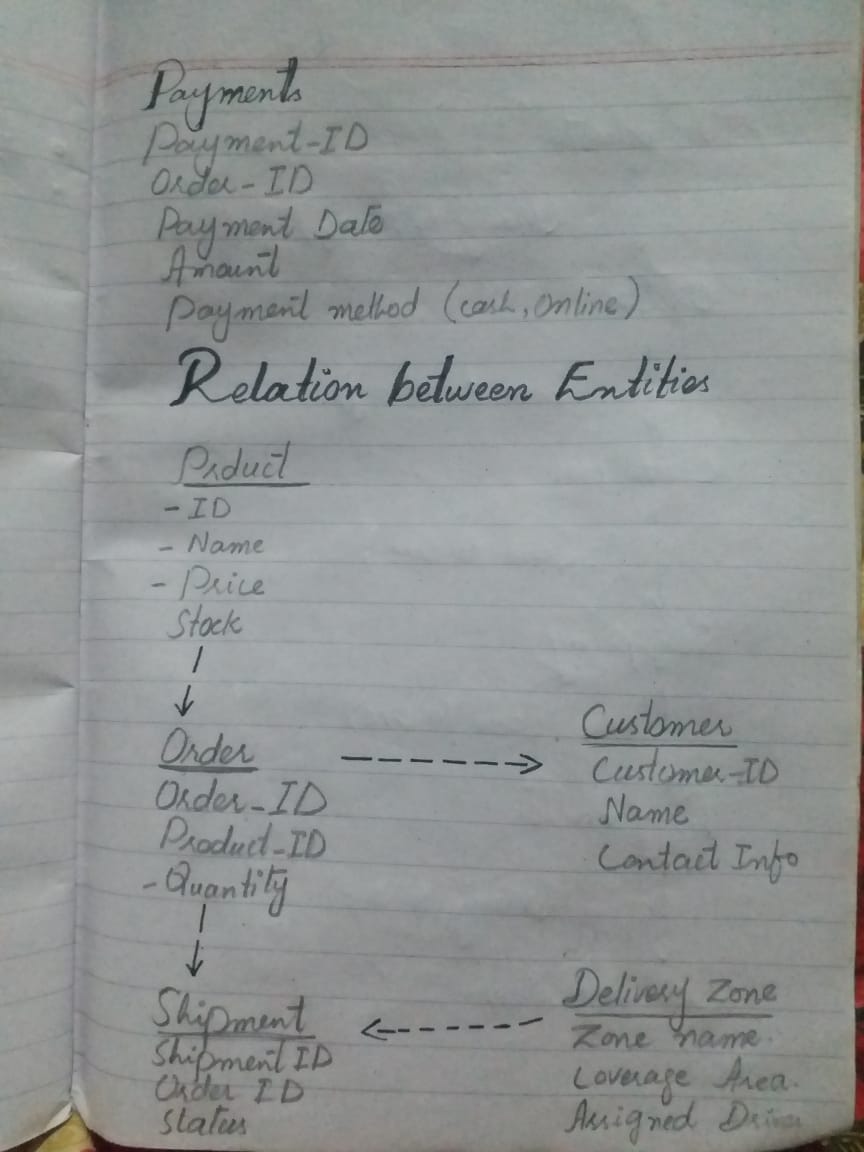 Payments
Payment-ID
Order-ID
Payment Date
Amount
Payment method (cash, online)
Relation between Entities
Prduct
- ID
- Name
- Price
Stock
Order
Order-ID
Product-ID
- Quantity
Customer
Customer-ID
Name
Contact Info
Shipment
Shipment ID
Order ID
Status
Delivery Zone
Zone name.
Coverage Area.
Assigned Driver